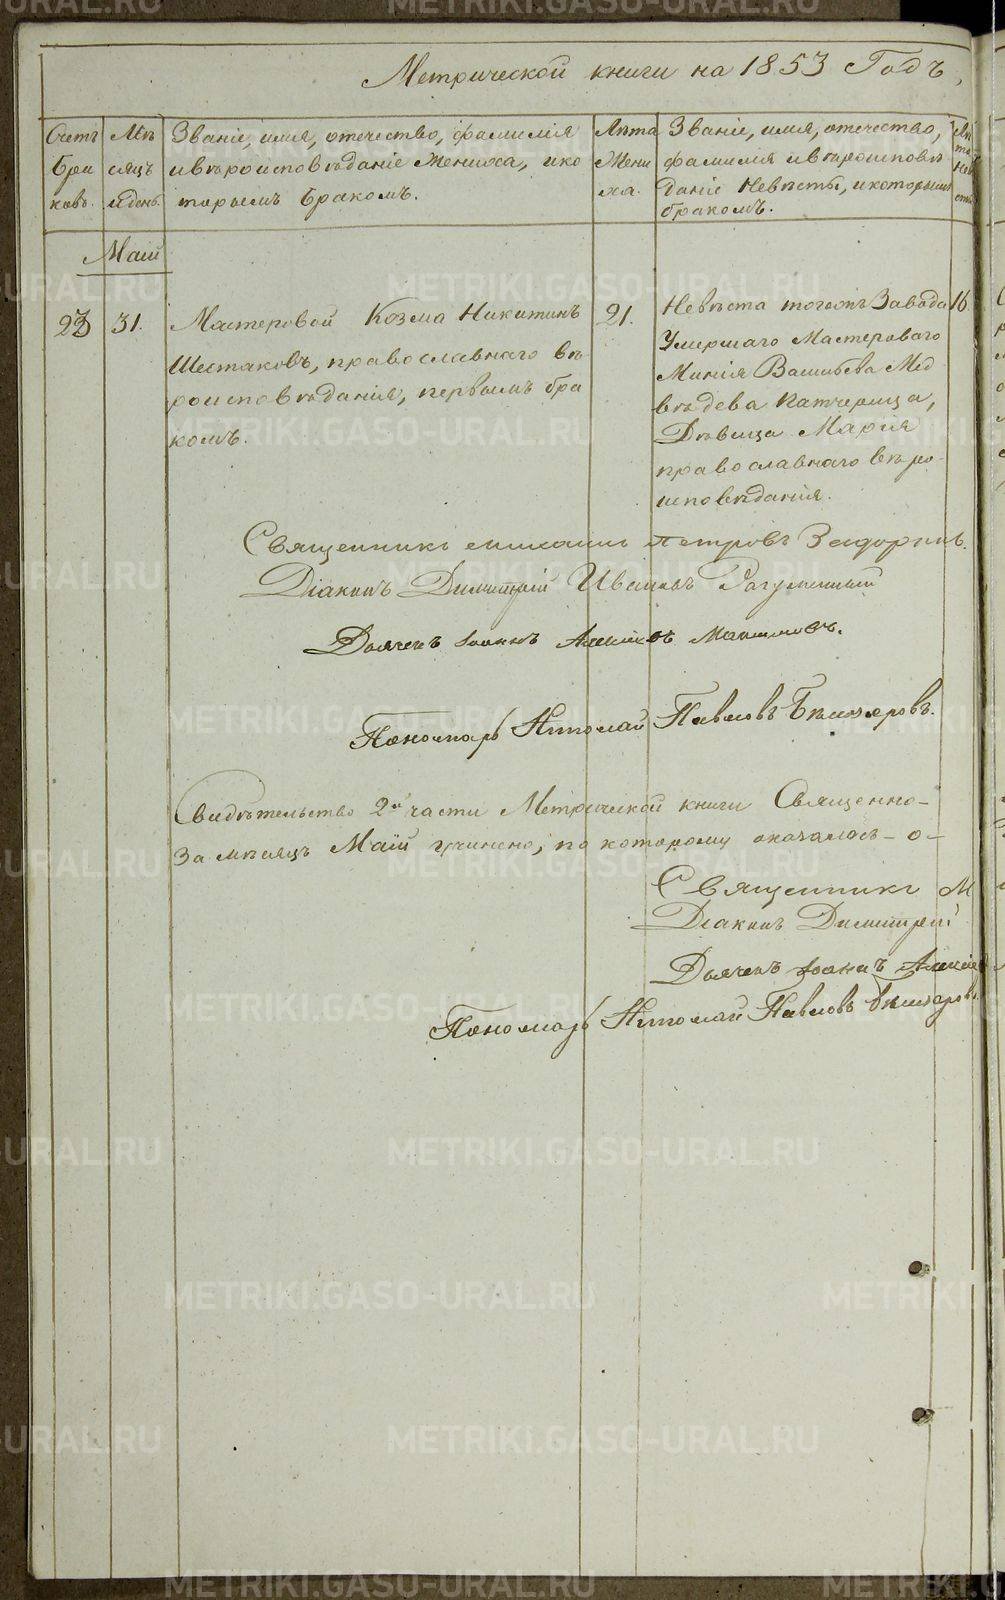 Метрической книги на 1853 Годъ,
Счетъ Браковъ.
Мѣсяцъ и день.
Званіе, имя, отечество, фамилія
и вѣроисповѣданіе Жениха, и ко
торымъ бракомъ.
Лѣта Жениха.
Званіе, имя, отечество,
фамилія и вѣроисповѣ
даніе Невѣсты, и которымъ
бракомъ.
Маій
23 31.
Мастеровой Козма Никитинъ
Шестаковъ, православнаго вѣ
роисповѣданія, первымъ бра
комъ.
21.
Невѣста тогожъ Завода
Умершаго Мастероваго
Минія Васильева Мед
вѣдева
Дѣвица Марія
православнаго вѣро
исповѣданія.
16.
Священникъ Михаилъ Петровъ
Діаконъ Димитрій Ивановъ
Дьячекъ Іоаннъ
Пономарь Николай Павловъ
Свидѣтельство 2й части Метрической книги Священно-
За мѣсяцъ Маій учинено, по которому оказалось - о -
Священникъ М
Діаконъ Димитрій
Дьячекъ Іоаннъ Алексіе
Пономарь Николай Павловъ
METRIKI.GASO-URAL.RU